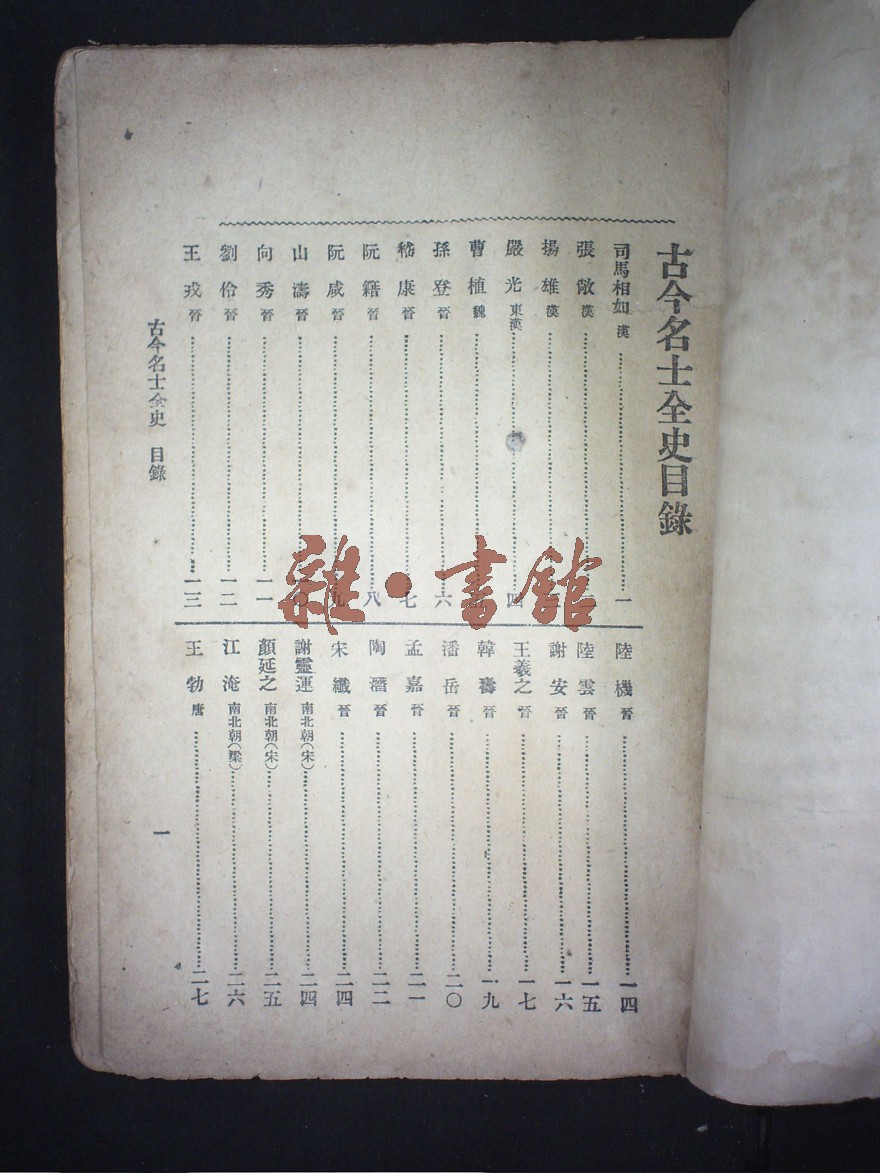 古今名士全史目錄
司馬相如 漢 一
張敞 漢
揚雄 漢
嚴光 東漢 四
曹植 魏
孫登 晉 六
嵇康 晉 七
阮籍 晉 八
阮咸 晉 九
山濤 晉 一〇
向秀 晉 一一
劉伶 晉 一二
王戎 晉 一三
陸機 晉 一四
陸雲 晉 一五
謝安 晉 一六
王羲之 晉 一七
韓壽 晉 一九
潘岳 晉 二〇
孟嘉 晉 二一
陶潛 晉 二二
宋纖 晉 二四
謝靈運 南北朝(宋) 二四
顏延之 南北朝(宋) 二五
江淹 南北朝(梁) 二六
王勃 唐 二七
古今名士全史 目錄
一
雜·書館